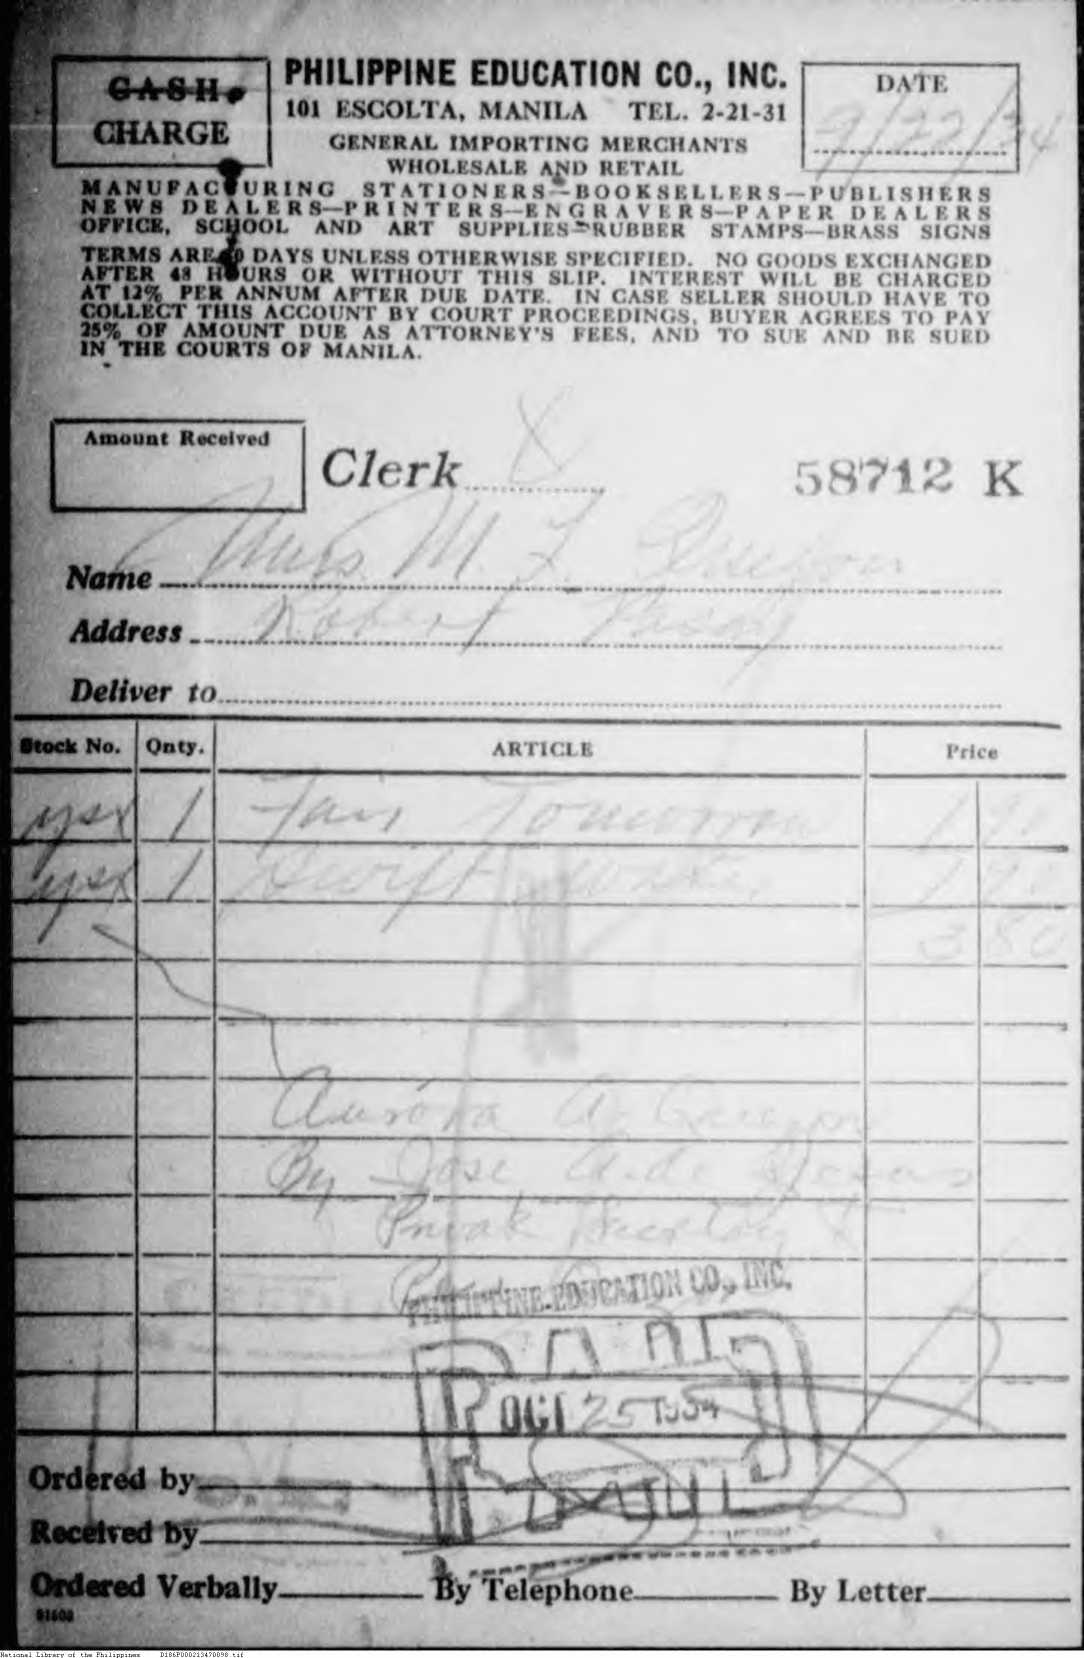 CASH.
CHARGE
PHILIPPINE EDUCATION CO., INC.
101 ESCOLTA, MANILA TEL. 2-21-31
GENERAL IMPORTING MERCHANTS
WHOLESALE AND RETAIL
DATE
9/22/34
MANUFACTURING STATIONERS—BOOKSELLERS—PUBLISHERS
NEWS DEALERS—PRINTERS—ENGRAVERS—PAPER DEALERS
OFFICE, SCHOOL AND ART SUPPLIES—RUBBER STAMPS—BRASS SIGNS
TERMS ARE DAYS UNLESS OTHERWISE SPECIFIED. NO GOODS EXCHANGED
AFTER 48 HOURS OR WITHOUT THIS SLIP. INTEREST WILL BE CHARGED
AT 12% PER ANNUM AFTER DUE DATE. IN CASE SELLER SHOULD HAVE TO
COLLECT THIS ACCOUNT BY COURT PROCEEDINGS, BUYER AGREES TO PAY
25% OF AMOUNT DUE AS ATTORNEY'S FEES, AND TO SUE AND BE SUED
IN THE COURTS OF MANILA.
Amount Received
Clerk
58712 K
Name Mrs M. L. Quezon
Address Robert Pasay
Deliver to
Stock No. Qnty. ARTICLE Price
1 Fair Tomorrow 1 90
1 Swift Water 1 90
3 80
Aurora A. Quezon
By Jose A. de Jesus
Private Secretary
PHILIPPINE EDUCATION CO., INC.
PAID
OCT 25 1934
Ordered by
Received by
Ordered Verbally By Telephone By Letter
91608
National Library of the Philippines D186P000213470898.tif